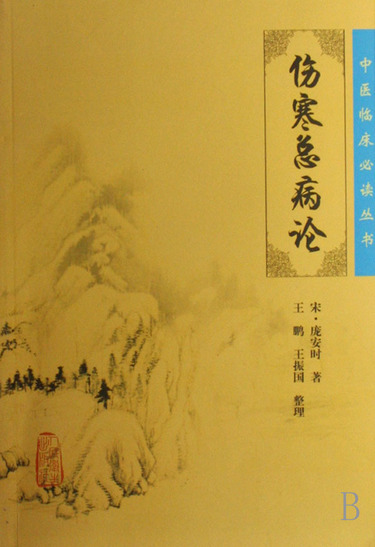 中医临床必读丛书
伤寒总病论
宋·庞安时 著
王鹏 王振国 整理
B